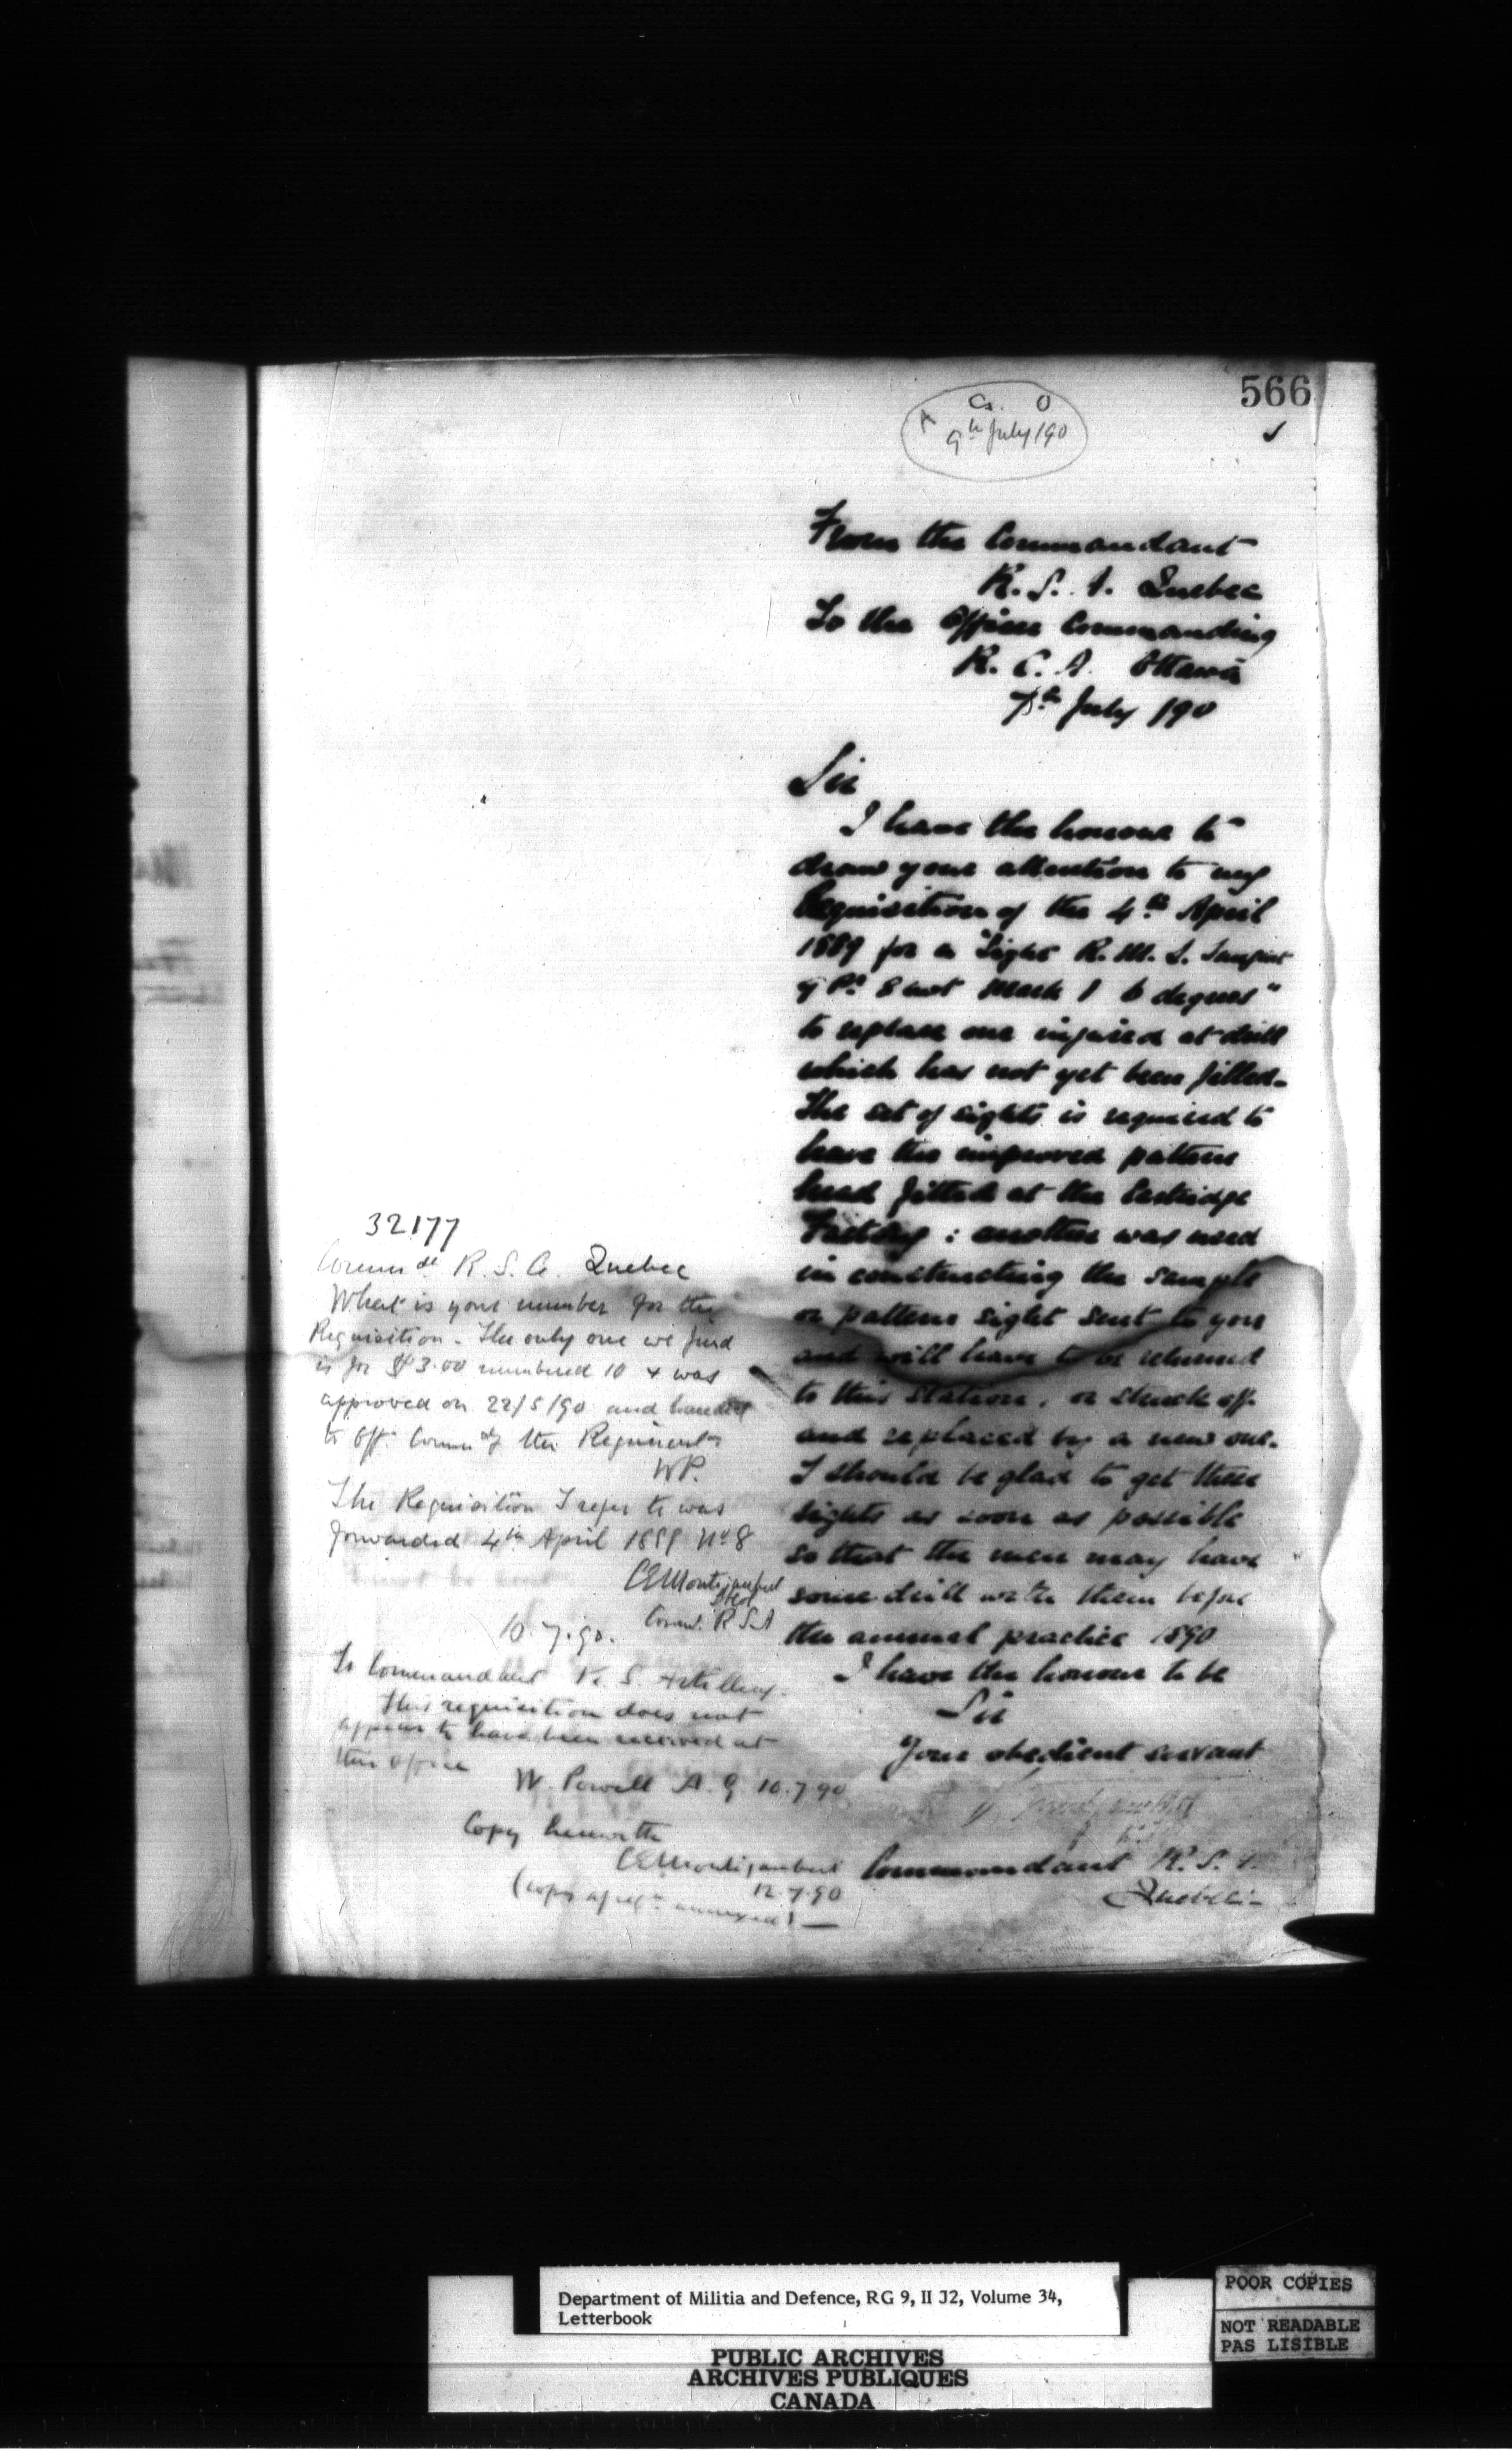 566
A Cs. O
9th July /90
From the Commandant
R. S. A. Quebec
To the Officer Commanding
R. C. A. Ottawa
7th July /90
Sir
I have the honour to
draw your attention to my
Requisition of the 4th April
1889 for a "Sight R. M. L. Tangent
8 cwt Mark I 6 degrees"
to replace one injured at drill
which has not yet been filled.
The set of sights is required to
have the improved pattern
head fitted at the Cartridge
Factory : another was used
in constructing the sample
or pattern sight sent to you
and will have to be returned
to this station, or struck off
and replaced by a new one.
I should be glad to get these
sights as soon as possible
so that the men may have
some drill with them before
the annual practice 1890
I have the honour to be
Sir
Your obedient servant
Commandant R. S. A.
Quebec
32177
Commdt R. S. A. Quebec
What is your number for the
Requisition - The only one we find
is for $3.00 numbered 10 & was
approved on 22/5/90 and handed
to Off. Commdg the Regiment
WP.
The Requisition I refer to was
forwarded 4th April 1889 No 8
CEMontizambert
Lt Col
Comm. R S A
10.7.90.
To Commandant R. S. Artillery.
This requisition does not
appear to have been received at
this office
W. Powell A. G. 10.7.90
Copy herewith
CEMontizambert
12.7.90
(copy of reqn annexed) —
Department of Militia and Defence, RG 9, II J2, Volume 34,
Letterbook
PUBLIC ARCHIVES
ARCHIVES PUBLIQUES
CANADA
POOR COPIES
NOT READABLE
PAS LISIBLE